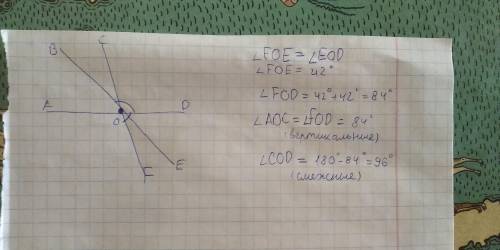 C
B
A
O
D
E
F
∠FOE = ∠EOD
∠FOE = 42°
∠FOD = 42°+42° = 84°
∠AOC = ∠FOD = 84°
(вертикальные)
∠COD = 180°-84° = 96°
(смежные)